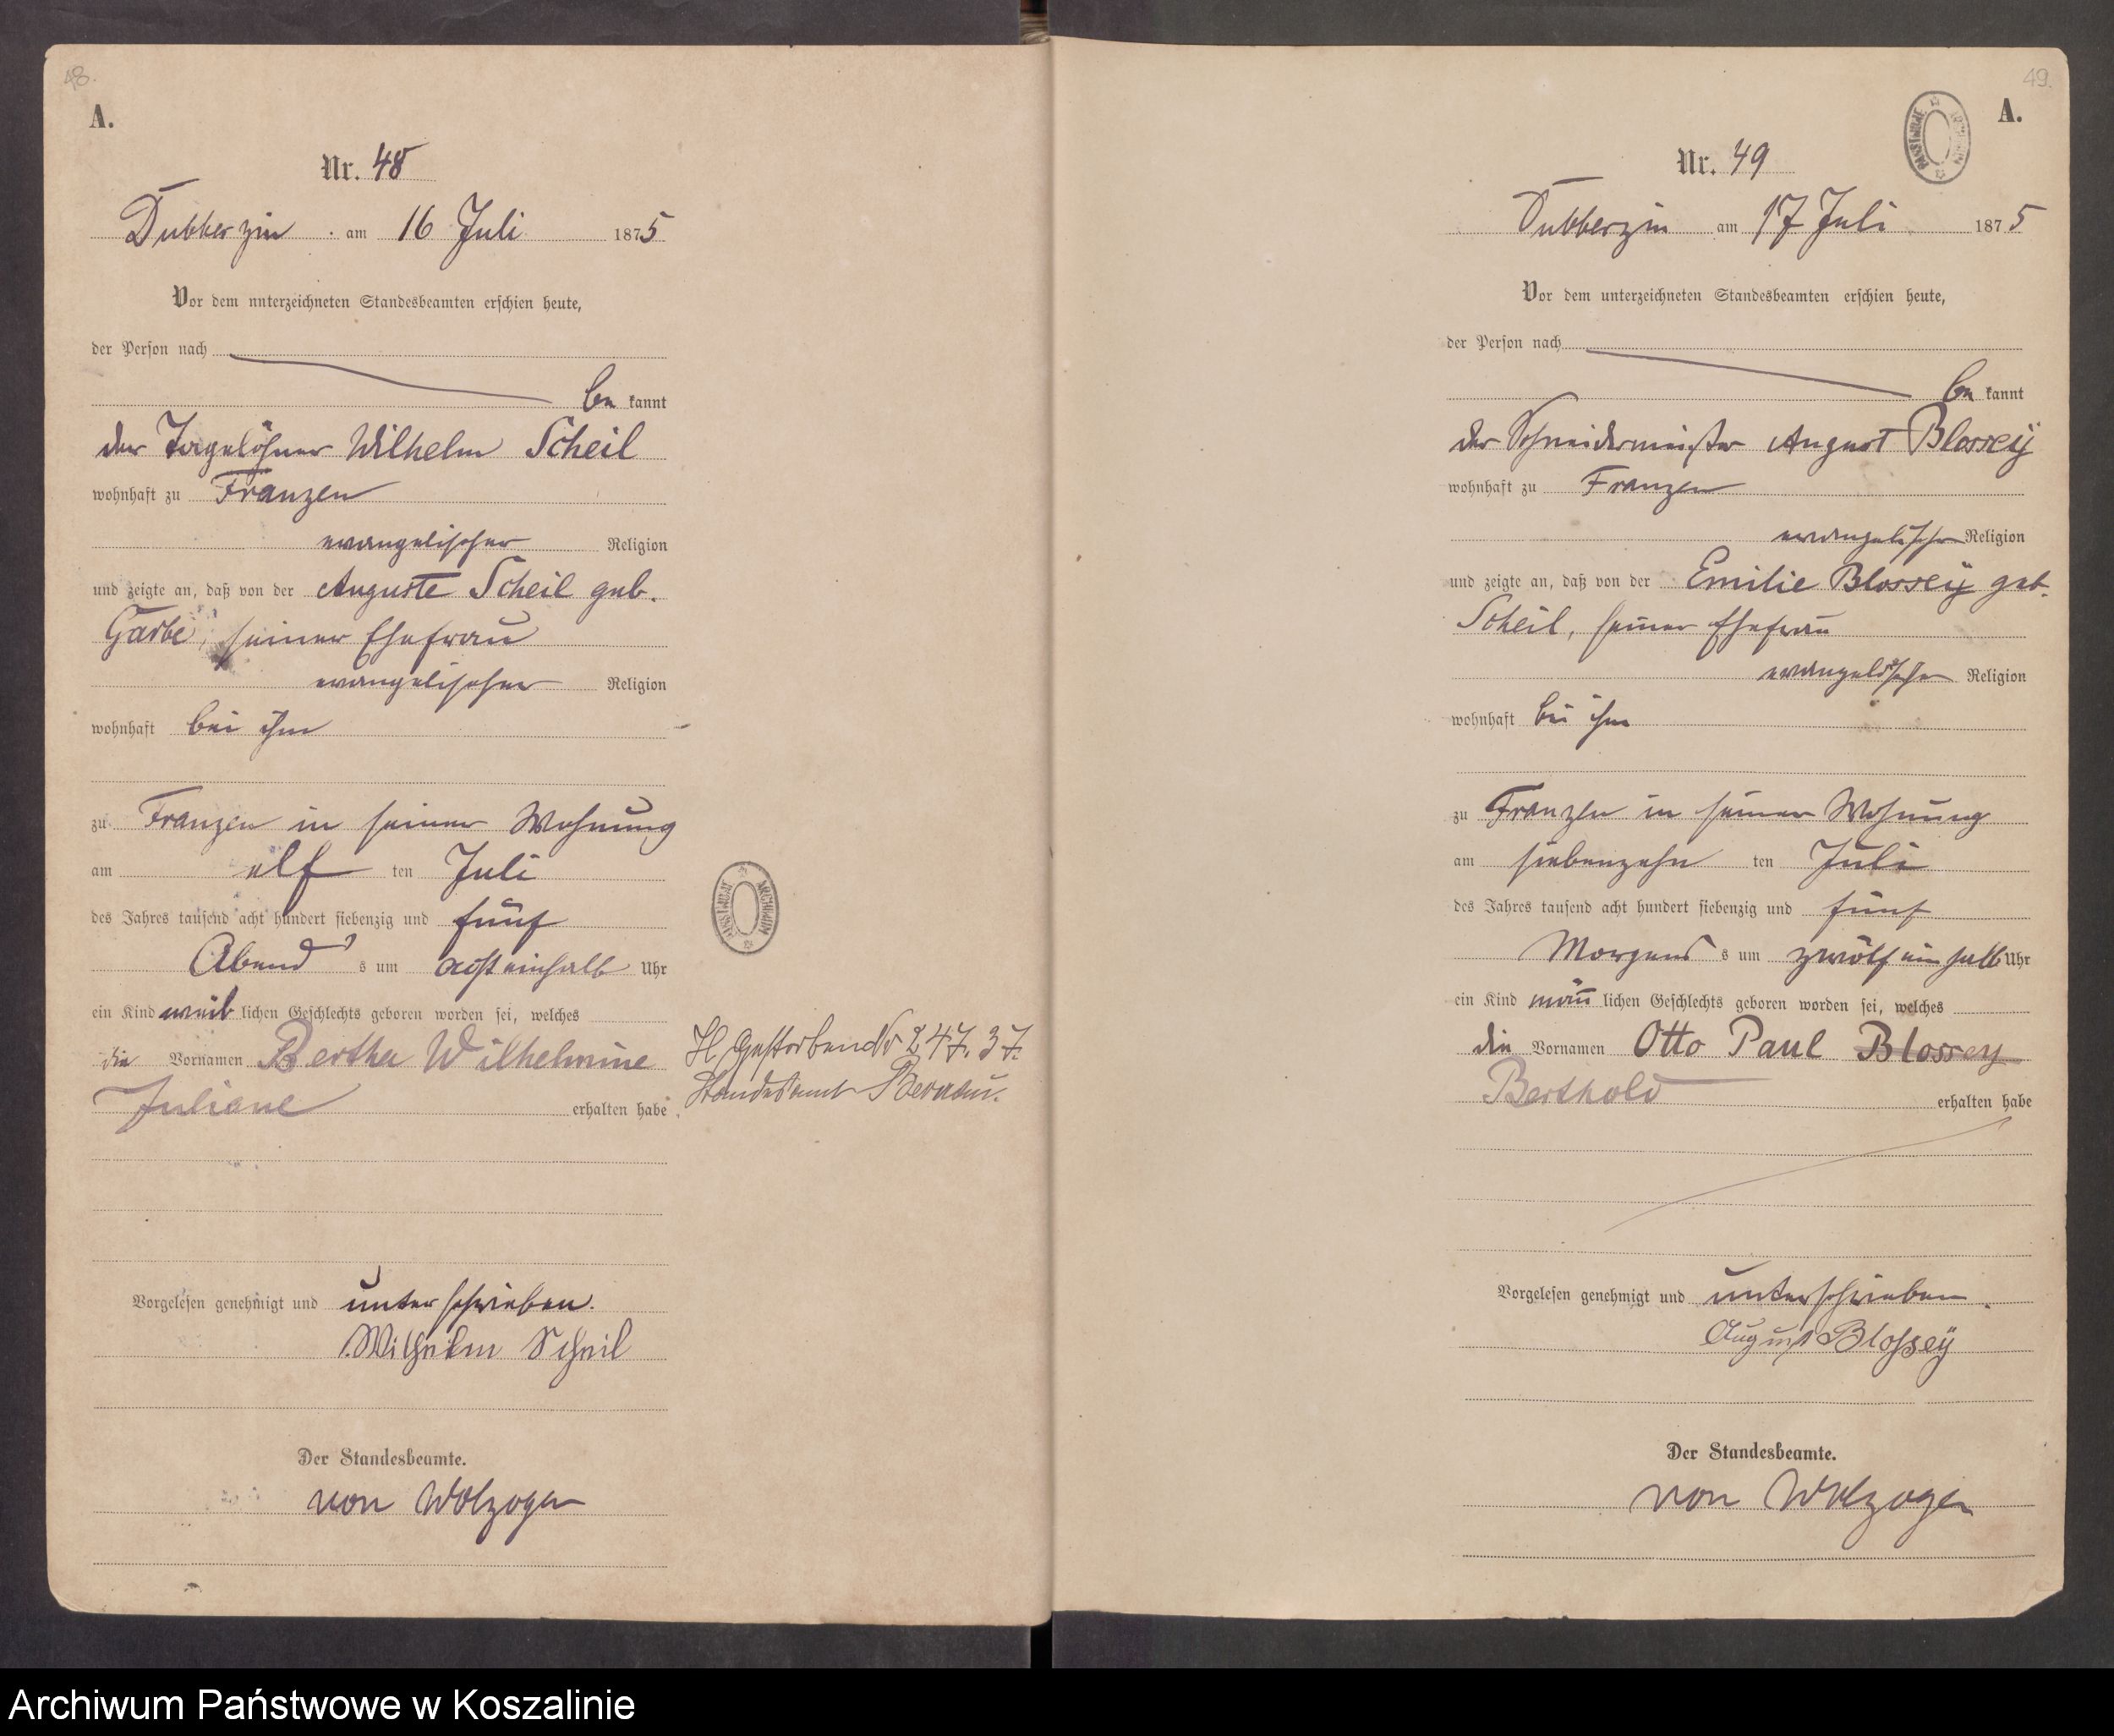 48.
A.
Nr. 48
Dubberzin am 16 Juli 1875
Vor dem unterzeichneten Standesbeamten erschien heute,
der Person nach
be kannt
der Tagelöhner Wilhelm Scheil
wohnhaft zu Franzen
evangelischer Religion
und zeigte an, daß von der Auguste Scheil geb.
Garbe, seiner Ehefrau
evangelischer Religion
wohnhaft bei ihm
zu Franzen in seiner Wohnung
am elf ten Juli
des Jahres tausend acht hundert siebenzig und fünf
Abend s um achteinhalb Uhr
ein Kind weib lichen Geschlechts geboren worden sei, welches
die Vornamen Bertha Wilhelmine
Juliane erhalten habe
H. Gestorben Nr 247. 37.
Standesamt Bernau.
PAŃSTWOWE ARCHIWUM
Vorgelesen genehmigt und unterschrieben.
Wilhelm Scheil
Der Standesbeamte.
von Wolzogen
49.
A.
PAŃSTWOWE ARCHIWUM
Nr. 49
Dubberzin am 17 Juli 1875
Vor dem unterzeichneten Standesbeamten erschien heute,
der Person nach
be kannt
der Schneidermeister August Blossey
wohnhaft zu Franzen
evangelischer Religion
und zeigte an, daß von der Emilie Blossey geb.
Scheil, seiner Ehefrau
evangelischer Religion
wohnhaft bei ihm
zu Franzen in seiner Wohnung
am siebenzehn ten Juli
des Jahres tausend acht hundert siebenzig und fünf
Morgens s um zwölf ein halb Uhr
ein Kind män̄ lichen Geschlechts geboren worden sei, welches
die Vornamen Otto Paul Blossey
Berthold erhalten habe
Vorgelesen genehmigt und unterschrieben.
August Blossey
Der Standesbeamte.
von Wolzogen
Archiwum Państwowe w Koszalinie